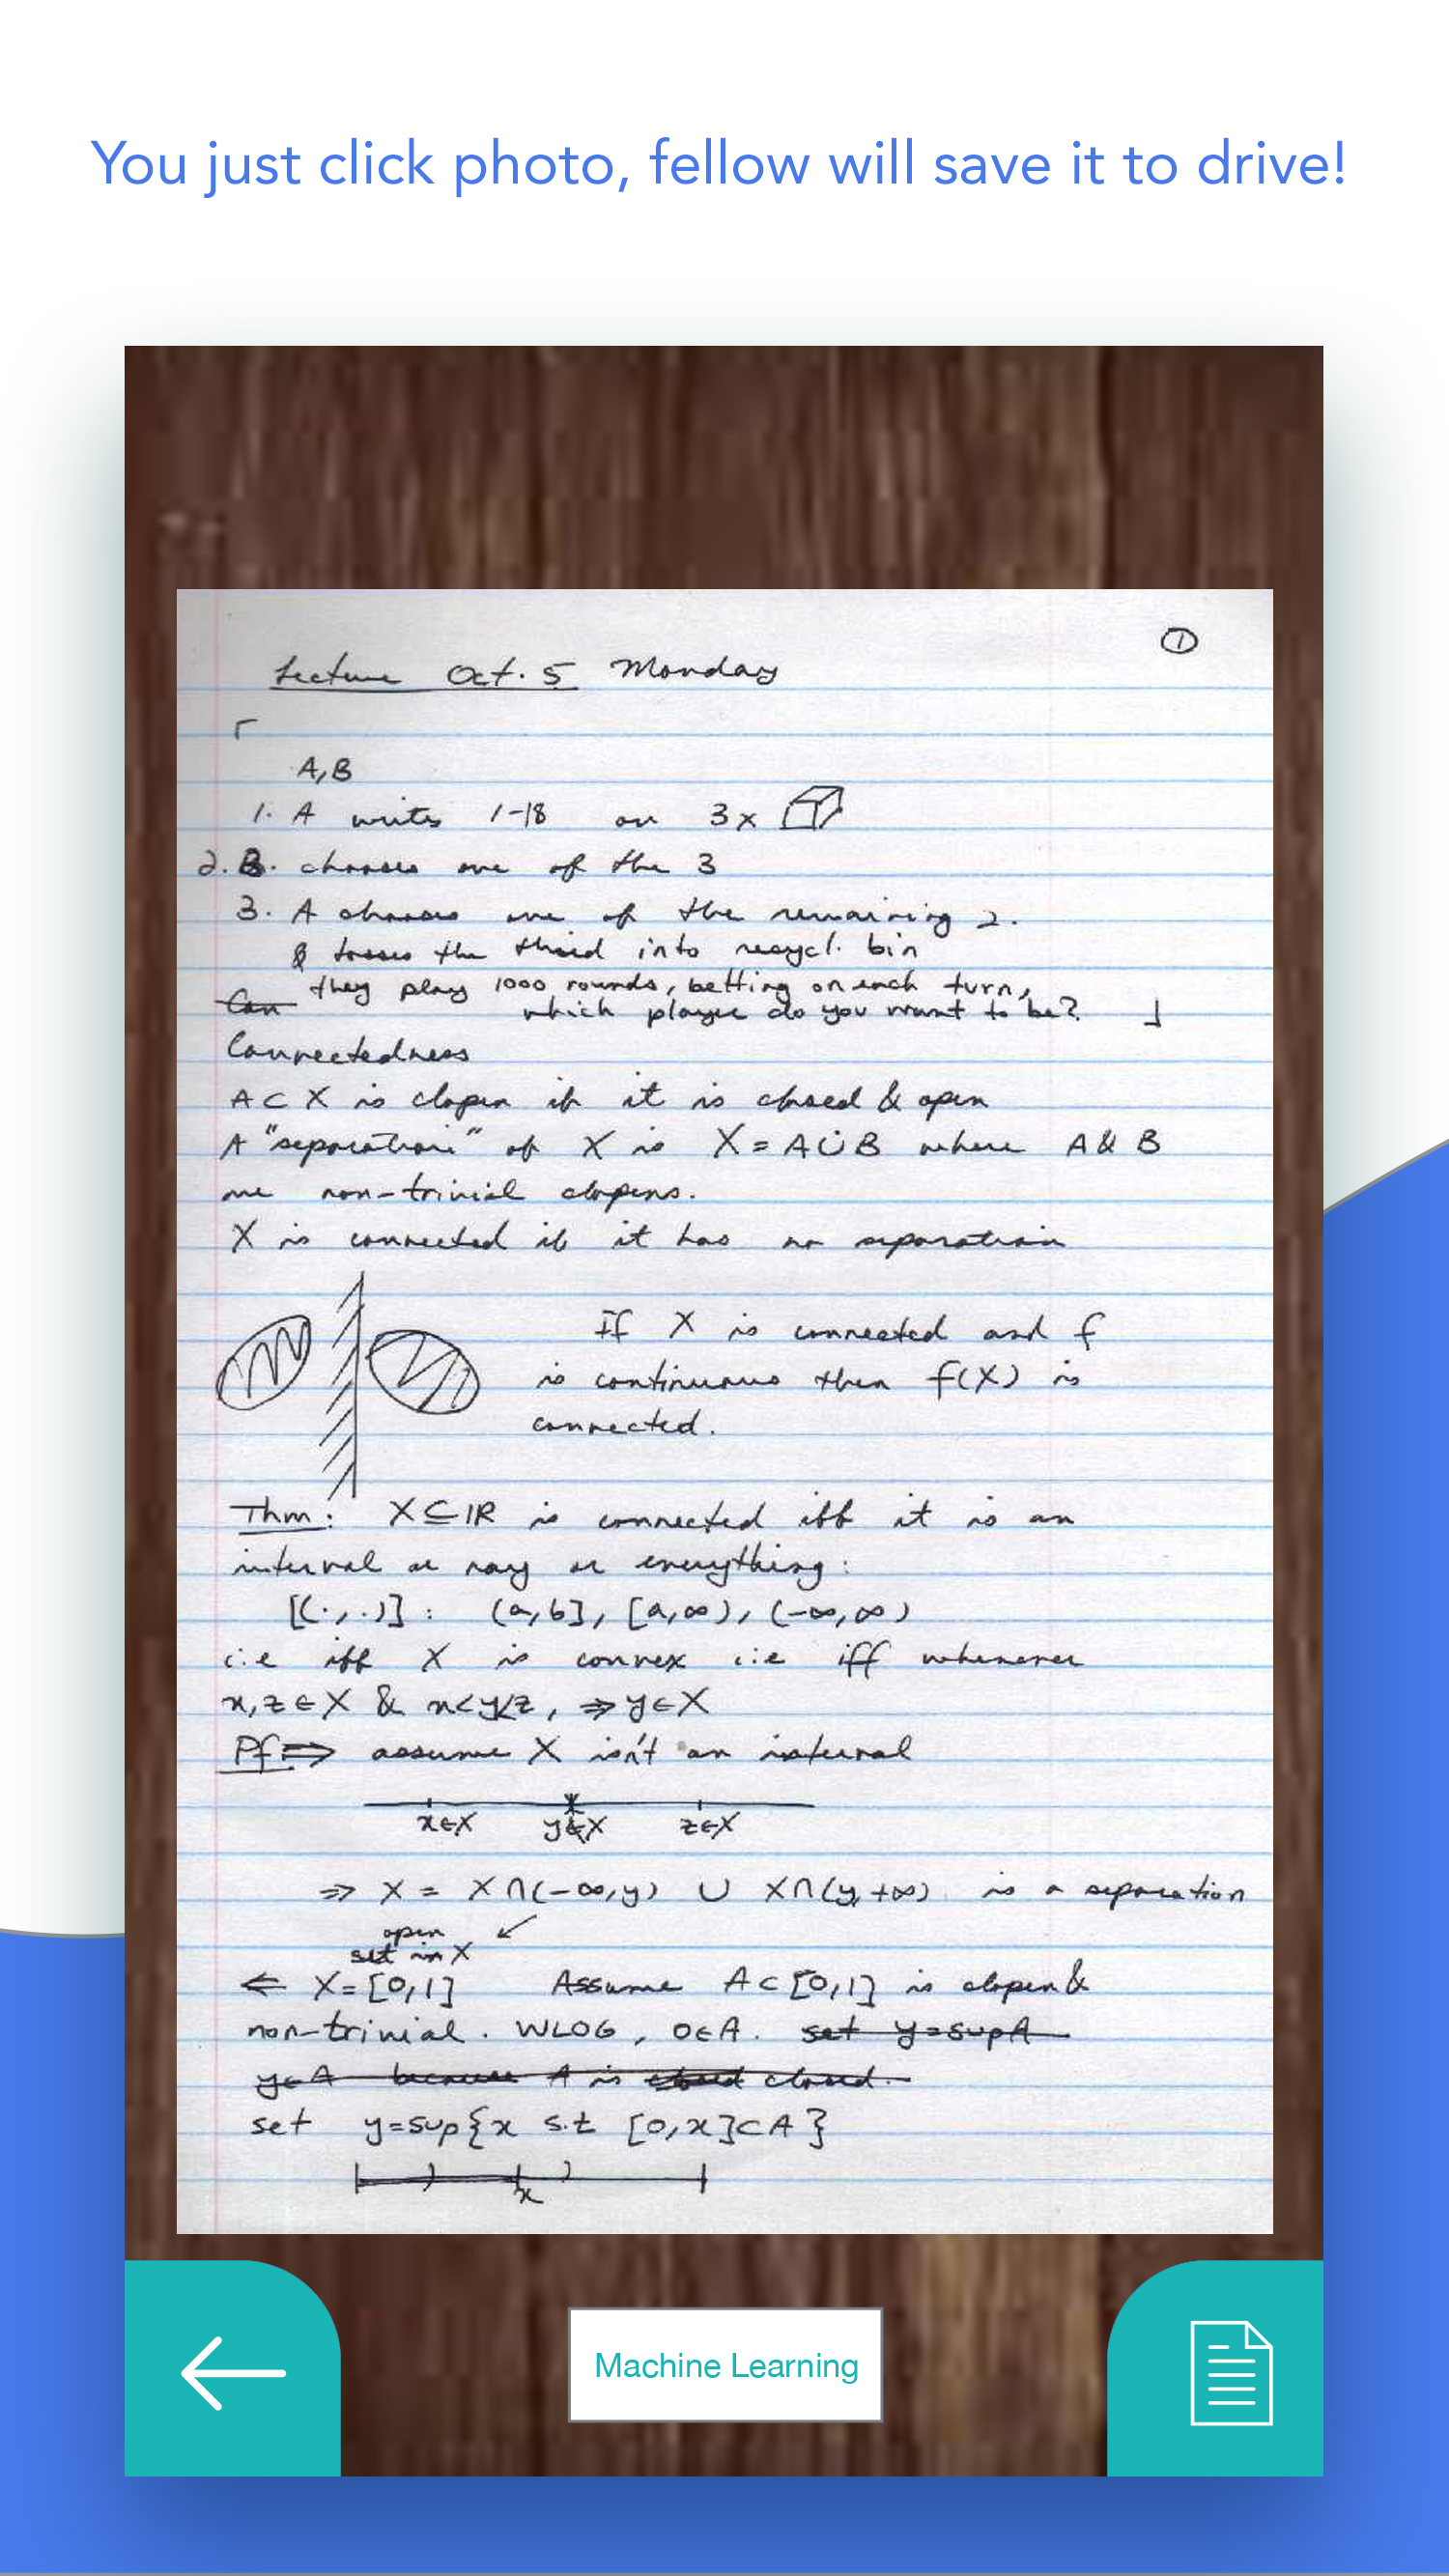 You just click photo, fellow will save it to drive!
①
Lecture Oct. 5 Monday
A, B
1. A writes 1-18 on 3x
2. B. chooses one of the 3
3. A chooses one of the remaining 2.
& tosses the third into recycl. bin
they play 1000 rounds, betting on each turn,
Can which player do you want to be?
Connectedness
A⊂X is clopen if it is closed & open
A "separation" of X is X = A∪̇B where A & B
are non-trivial clopens.
X is connected if it has no separation
If X is connected and f
is continuous then f(X) is
connected.
Thm: X⊆ℝ is connected iff it is an
interval or ray or everything:
[(·,·)]: (a,b], [a,∞), (-∞,∞)
i.e iff X is convex i.e iff whenever
x,z∈X & x<y<z, ⇒ y∈X
Pf ⇒ assume X isn't an interval
x∈X y∉X z∈X
⇒ X = X∩(-∞,y) ∪ X∩(y,+∞) is a separation
open
set in X
⇐ X=[0,1] Assume A⊂[0,1] is clopen &
non-trivial. WLOG, 0∈A. set y=supA
y∈A because A is closed.
set y=sup{x s.t [0,x]⊂A}
x
Machine Learning